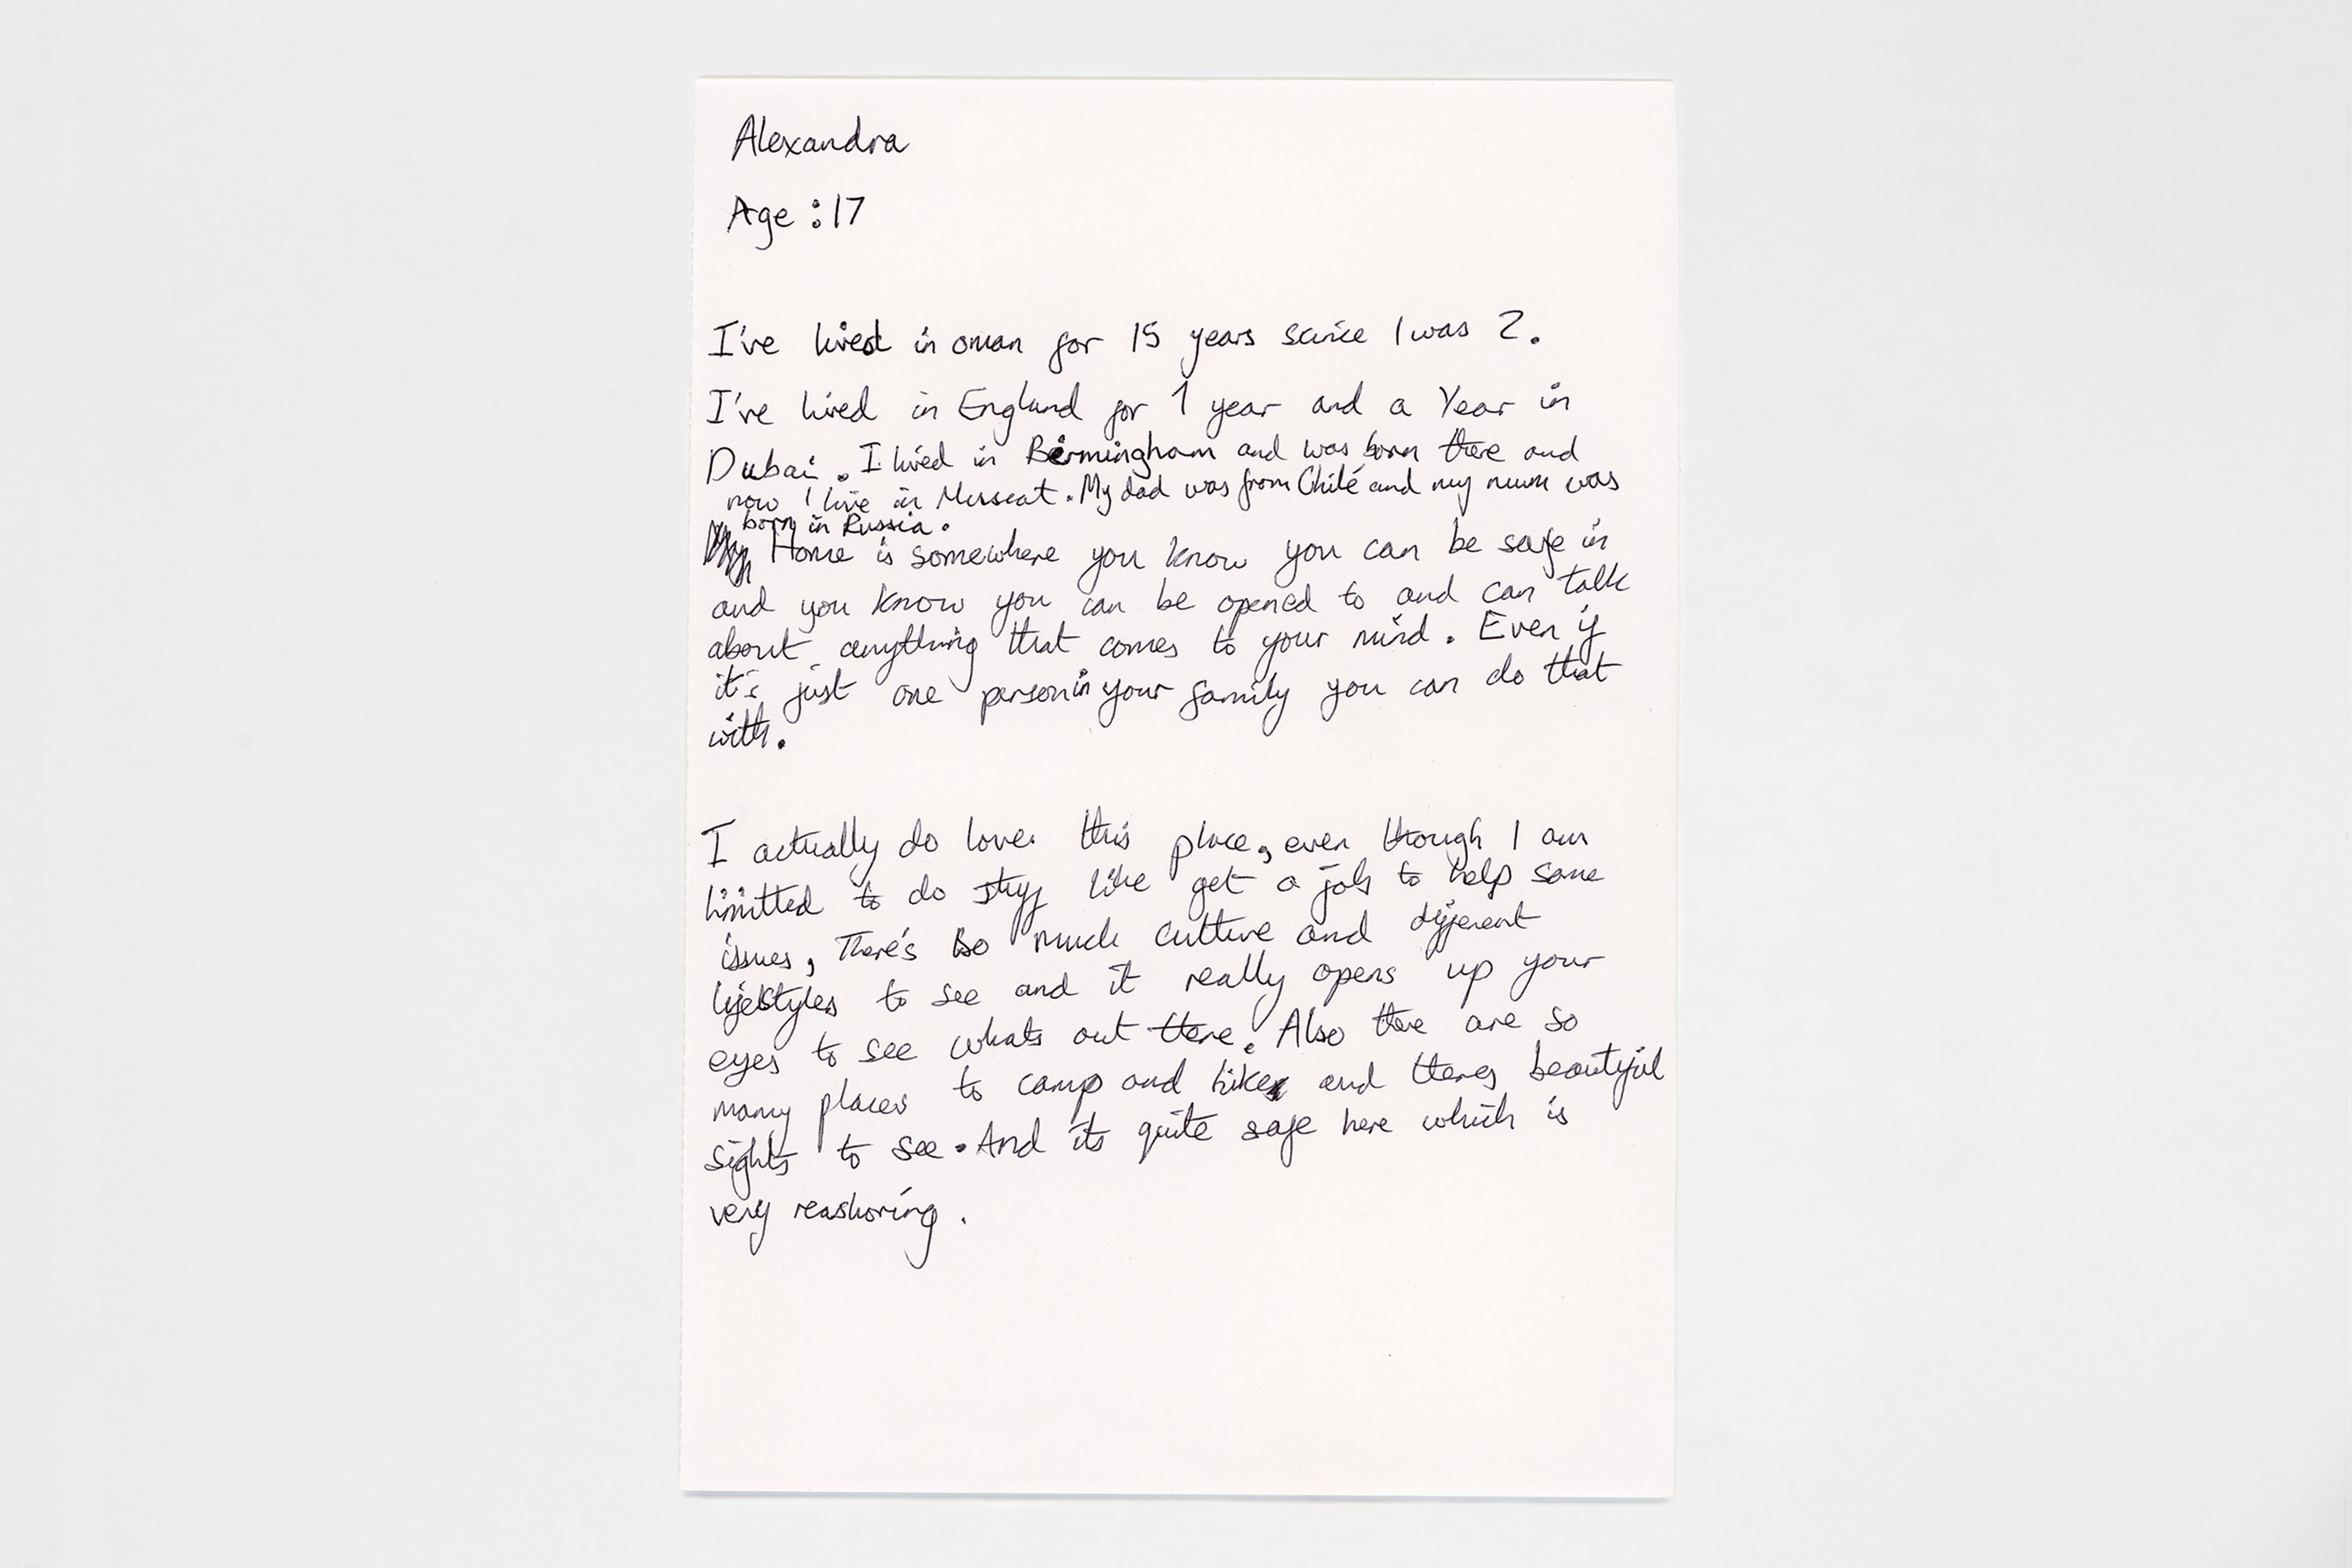 Alexandra
Age : 17
I've lived in oman for 15 years scince I was 2.
I've lived in England for 1 year and a Year in
Dubai. I lived in Birmingham and was born there and
now I live in Muscat. My dad was from Chilé and my mum was
born in Russia.
Home is somewhere you know you can be safe in
and you know you can be opened to and can talk
about anything that comes to your mind. Even if
it's just one person in your family you can do that
with.
I actually do love this place, even though I am
limitted to do stuff like get a job to help some
issues, There's so much culture and different
lifestyles to see and it really opens up your
eyes to see whats out there. Also there are so
many places to camp and hike and theres beautiful
sights to see. And its quite safe here which is
very reashoring.